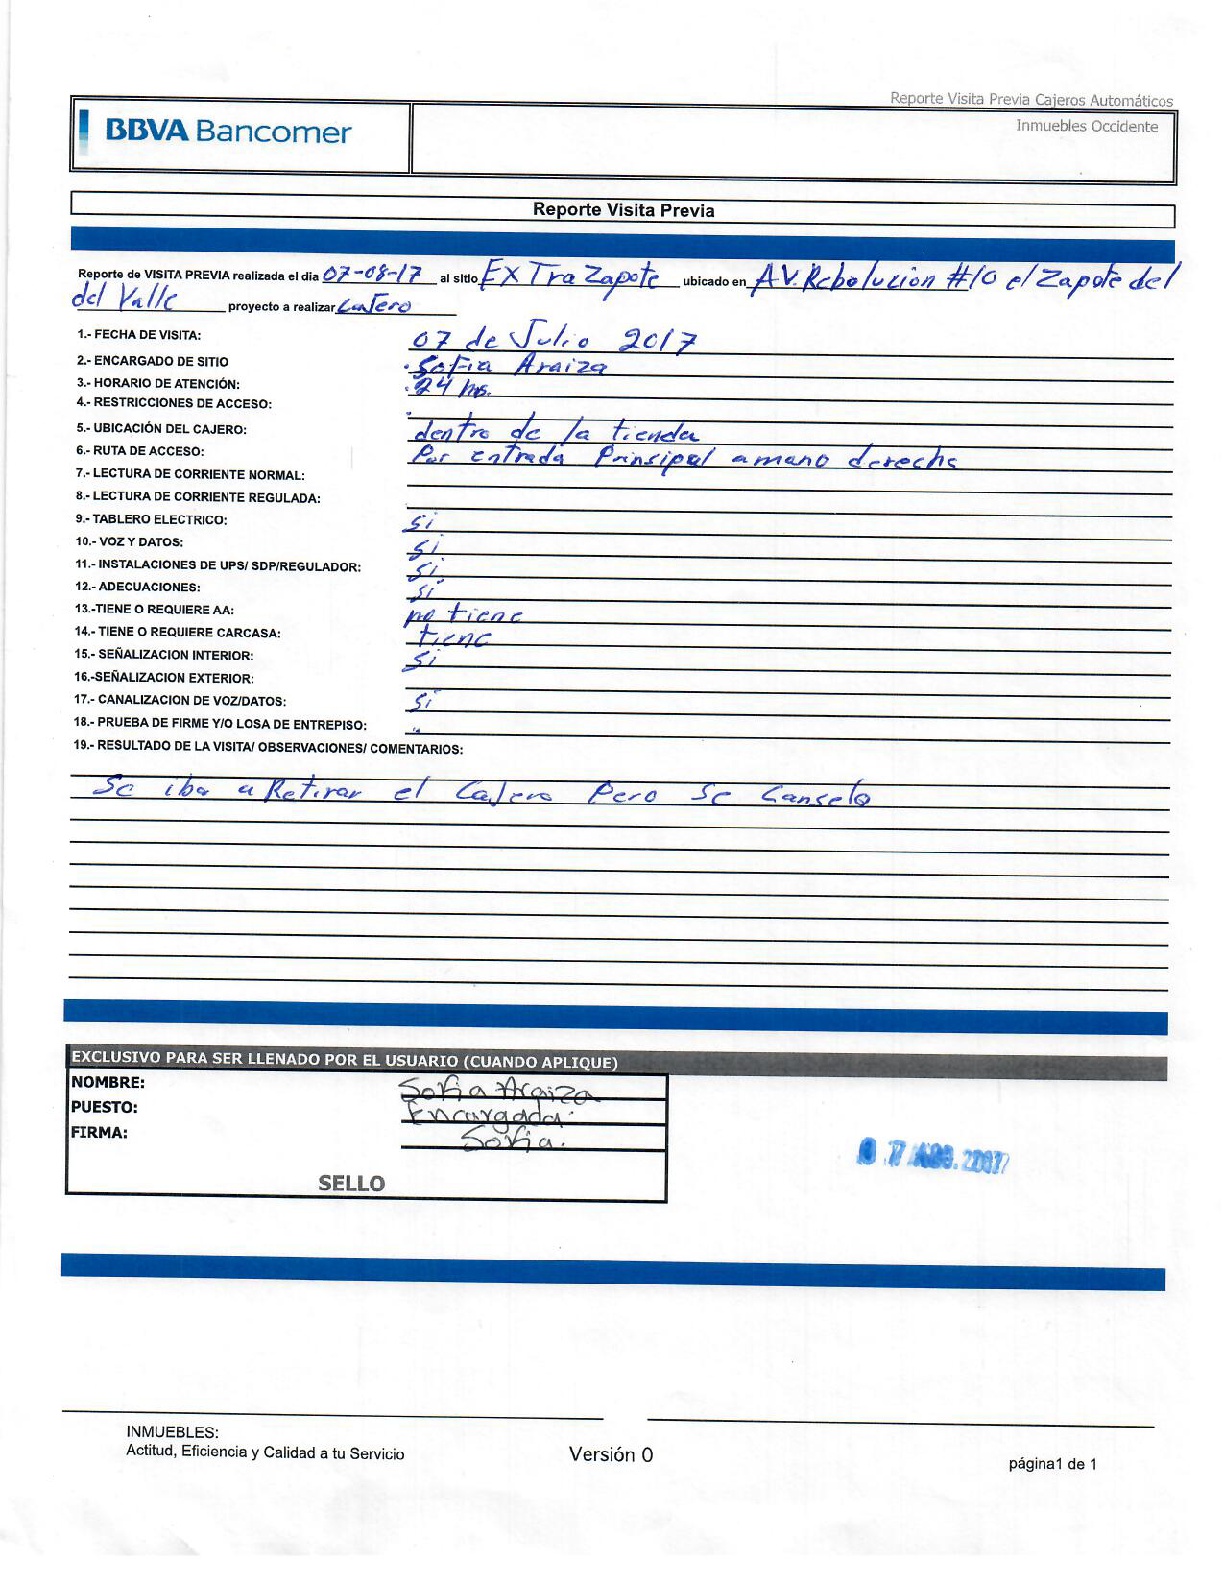 Reporte Visita Previa Cajeros Automáticos
BBVA Bancomer
Inmuebles Occidente
Reporte Visita Previa
Reporte de VISITA PREVIA realizada el dia 07-08-17 al sitio EXTra Zapote ubicado en AV. Rebolucion #10 el Zapote del
del Valle proyecto a realizar cajero
1.- FECHA DE VISITA: 07 de Julio 2017
2.- ENCARGADO DE SITIO Sofia Araiza
3.- HORARIO DE ATENCIÓN: 24 hrs.
4.- RESTRICCIONES DE ACCESO:
5.- UBICACIÓN DEL CAJERO: dentro de la tienda
6.- RUTA DE ACCESO: Por entrada Prinsipal a mano derecha
7.- LECTURA DE CORRIENTE NORMAL:
8.- LECTURA DE CORRIENTE REGULADA:
9.- TABLERO ELECTRICO: si
10.- VOZ Y DATOS: si
11.- INSTALACIONES DE UPS/ SDP/REGULADOR: si
12.- ADECUACIONES: si
13.-TIENE O REQUIERE AA: no tiene
14.- TIENE O REQUIERE CARCASA: tiene
15.- SEÑALIZACION INTERIOR: si
16.-SEÑALIZACION EXTERIOR:
17.- CANALIZACION DE VOZ/DATOS: si
18.- PRUEBA DE FIRME Y/O LOSA DE ENTREPISO:
19.- RESULTADO DE LA VISITA/ OBSERVACIONES/ COMENTARIOS:
Se iba a Retirar el Cajero Pero Se Canselo
EXCLUSIVO PARA SER LLENADO POR EL USUARIO (CUANDO APLIQUE)
NOMBRE: Sofia Araiza
PUESTO: Encargada.
FIRMA: Sofia.
SELLO
07 AGO. 2017
INMUEBLES:
Actitud, Eficiencia y Calidad a tu Servicio
Versión 0
página1 de 1